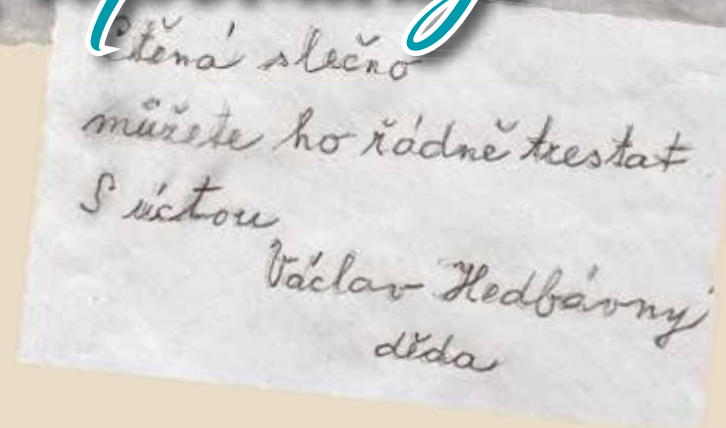 Ctěná slečno
můžete ho řádně trestat
S úctou
Václav Hedbávný
děda